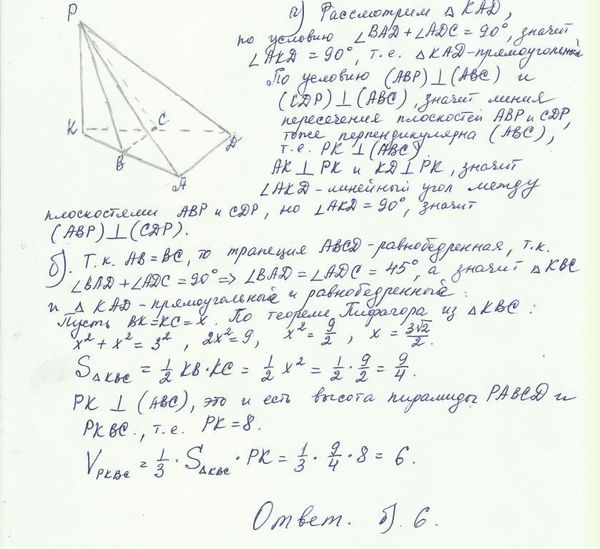 P
K
C
B
D
A
а) Рассмотрим △ KAD,
по условию ∠BAD + ∠ADC = 90°, значит
∠AKD = 90°, т.е. △KAD-прямоугольный
По условию (ABP)⊥(ABC) и
(CDP)⊥(ABC), значит линия
пересечения плоскостей ABP и CDP,
тоже перпендикулярна (ABC),
т.е. PK ⊥ (ABC)
AK⊥PK и KD⊥PK, значит
∠AKD-линейный угол между
плоскостями ABP и CDP, но ∠AKD=90°, значит
(ABP)⊥(CDP).
б). Т.к. AB=BC, то трапеция ABCD-равнобедренная, т.к.
∠BAD+∠ADC = 90° => ∠BAD=∠ADC = 45°, а значит △KBC
и △ KAD-прямоугольные и равнобедренные.
Пусть BK=KC=x. По теореме Пифагора из △KBC:
x²+x² = 3², 2x²=9, x²=9/2, x = 3√2/2.
S△KBC = 1/2 KB·KC = 1/2 x² = 1/2 · 9/2 = 9/4.
PK ⊥ (ABC), это и есть высота пирамиды PABCD и
PKBC., т.е. PK=8.
V PKBC = 1/3 · S△KBC · PK = 1/3 · 9/4 · 8 = 6.
Ответ. б). 6.